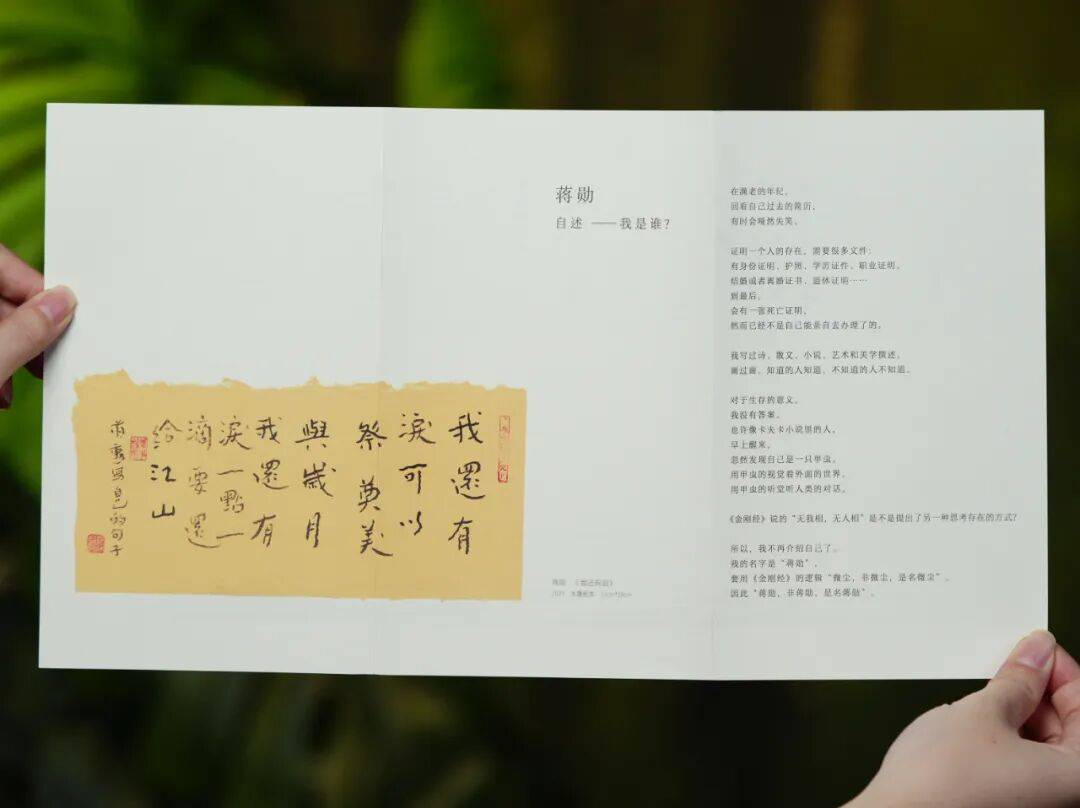 我還有
淚可以
祭奠美
與歲月
我還有
淚一點一
滴要還
給江山
蒋勋
自述 ——我是谁？
在渐老的年纪，
回看自己过去的简历，
有时会哑然失笑。
证明一个人的存在，需要很多文件：
有身份证明、护照、学历证件、职业证明，
结婚或者离婚证书、退休证明……
到最后，
会有一张死亡证明，
然而已经不是自己能亲自去办理了的。
我写过诗、散文、小说、艺术和美学撰述，
画过画，知道的人知道，不知道的人不知道。
对于生存的意义，
我没有答案。
也许像卡夫卡小说里的人，
早上醒来，
忽然发现自己是一只甲虫。
用甲虫的视觉看外面的世界，
用甲虫的听觉听人类的对话。
《金刚经》说的“无我相，无人相”是不是提出了另一种思考存在的方式？
所以，我不再介绍自己了。
我的名字是“蒋勋”，
套用《金刚经》的逻辑“微尘，非微尘，是名微尘”，
因此“蒋勋，非蒋勋，是名蒋勋”。